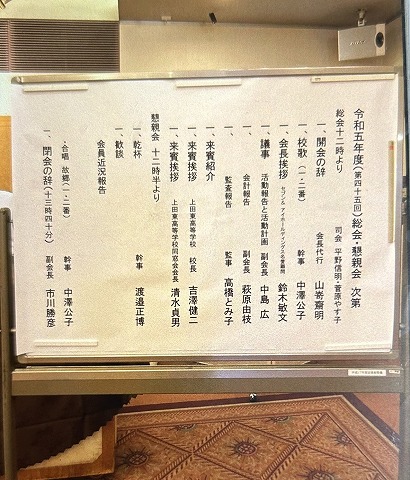 令和五年度(第四十五回)総会・懇親会 次第
司会 平野信明・菅原やす子
総会十二時より
一、開会の辞 会長代行 山嵜齋明
一、校歌(一、二番) 幹事 中澤公子
一、会長挨拶 セブン&アイホールディングス名誉顧問 鈴木敏文
一、議事 活動報告と活動計画 副会長 中島 広
会計報告 副会長 萩原由枝
一、監査報告 監事 高橋とみ子
一、来賓紹介
一、来賓挨拶 上田東高等学校 校長 吉澤健二
一、来賓挨拶 上田東高等学校同窓会会長 清水貞男
懇親会 十二時半より
一、乾杯 幹事 渡邉正博
一、歓談
会員近況報告
、合唱 故郷(一、二番) 幹事 中澤公子
一、閉会の辞(十三時四十分) 副会長 市川勝彦